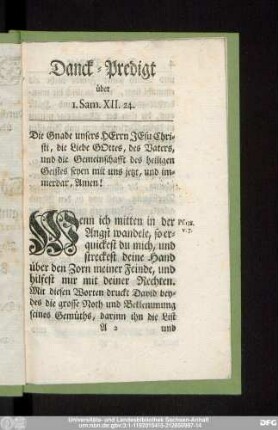 Danck-Predigt
über
1. Sam. XII. 24.
Die Gnade unsers HErrn JEsu Chri-
sti, die Liebe GOttes, des Vaters,
und die Gemeinschafft des heiligen
Geistes seyen mit uns jetzt, und im-
merdar, Amen!
Wenn ich mitten in der
Angst wandele, so er-
quickest du mich, und
streckest deine Hand
über den Zorn meiner Feinde, und
hilfest mir mit deiner Rechten.
Mit diesen Worten druckt David bey-
des die grosse Noth und Beklemmung
seines Gemüths, darinn ihn die List
A 2 und
v. 7.
Universitäts- und Landesbibliothek Sachsen-Anhalt
DFG